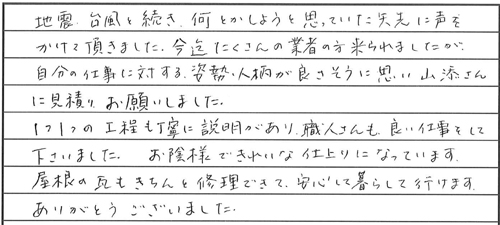 地震、台風と続き、何とかしようと思っていた矢先に声を
かけて頂きました。今迄たくさんの業者の方来られましたが、
自分の仕事に対する、姿勢、人柄が良さそうに思い山添さん
に見積り、お願いしました。
1つ1つの工程も丁寧に説明があり、職人さんも、良い仕事をして
下さいました。 お陰様できれいな仕上りになっています。
屋根の瓦もきちんと修理できて、安心して暮らして行けます。
ありがとうございました。